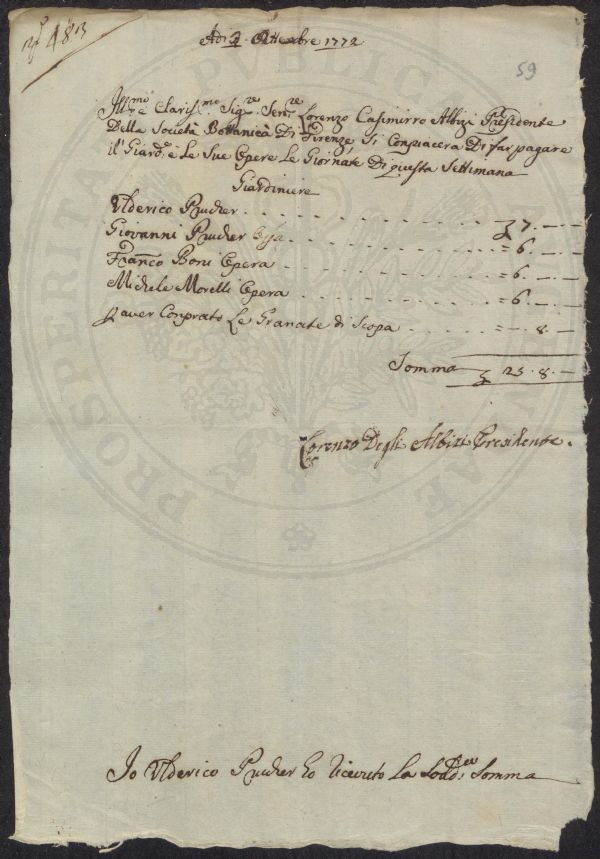 N° 483
Adi 3 Ottobre 1772
59
Ill:mo e Clariss:mo Sig:re Sen:re Lorenzo Casimirro Albizi Presidente
Della Società Bottanica Di Firenze, Si Conpiacera Di far pagare
il Giard:e e Le Sue Opere Le Giornate Di questa Settimana
Giardiniere
Ulderico Prucker 7. — —
Giovanni Prucker Opa = 6. — —
Franco Boni Opera = 6. — —
Michele Morelli Opera = 6. — —
p aver Conprato Le Granate di Scopa = — 8 —
Somma 25. 8. —
Lorenzo Degli Albizi Presidente
Io Ulderico Prucker ho Riceuto La Sod:a Somma
PROSPERITATI PVBLICAE AVGENDAE